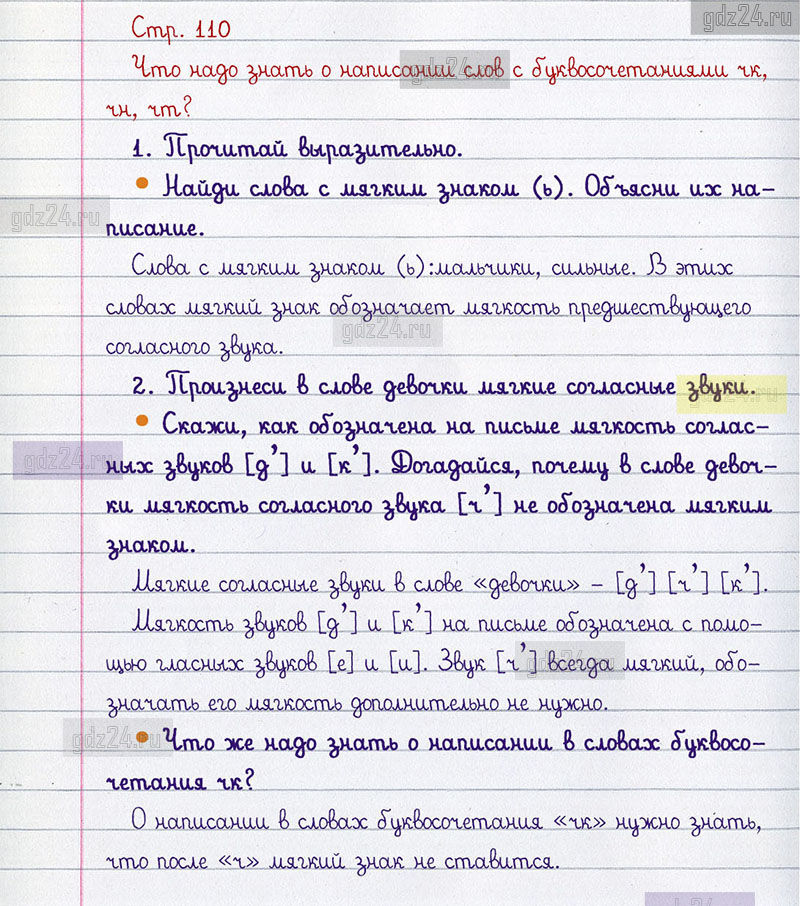 gdz24.ru
Стр. 110
Что надо знать о написании слов с буквосочетаниями чк,
gdz24.ru
чн, чт?
1. Прочитай выразительно.
• Найди слова с мягким знаком (ь). Объясни их на-
gdz24.ru
писание.
Слова с мягким знаком (ь):мальчики, сильные. В этих
словах мягкий знак обозначает мягкость предшествующего
gdz24.ru
согласного звука.
2. Произнеси в слове девочки мягкие согласные звуки.
gdz24.ru
• Скажи, как обозначена на письме мягкость соглас-
gdz24.ru
ных звуков [д’] и [к’]. Догадайся, почему в слове девоч-
ки мягкость согласного звука [ч’] не обозначена мягким
знаком.
Мягкие согласные звуки в слове «девочки» – [д’] [ч’] [к’].
Мягкость звуков [д’] и [к’] на письме обозначена с помо-
щью гласных звуков [е] и [и]. Звук [ч’] всегда мягкий, обо-
gdz24.ru
значать его мягкость дополнительно не нужно.
gdz24.ru
• Что же надо знать о написании в словах буквосо-
четания чк?
О написании в словах буквосочетания «чк» нужно знать,
что после «ч» мягкий знак не ставится.
gdz24.ru